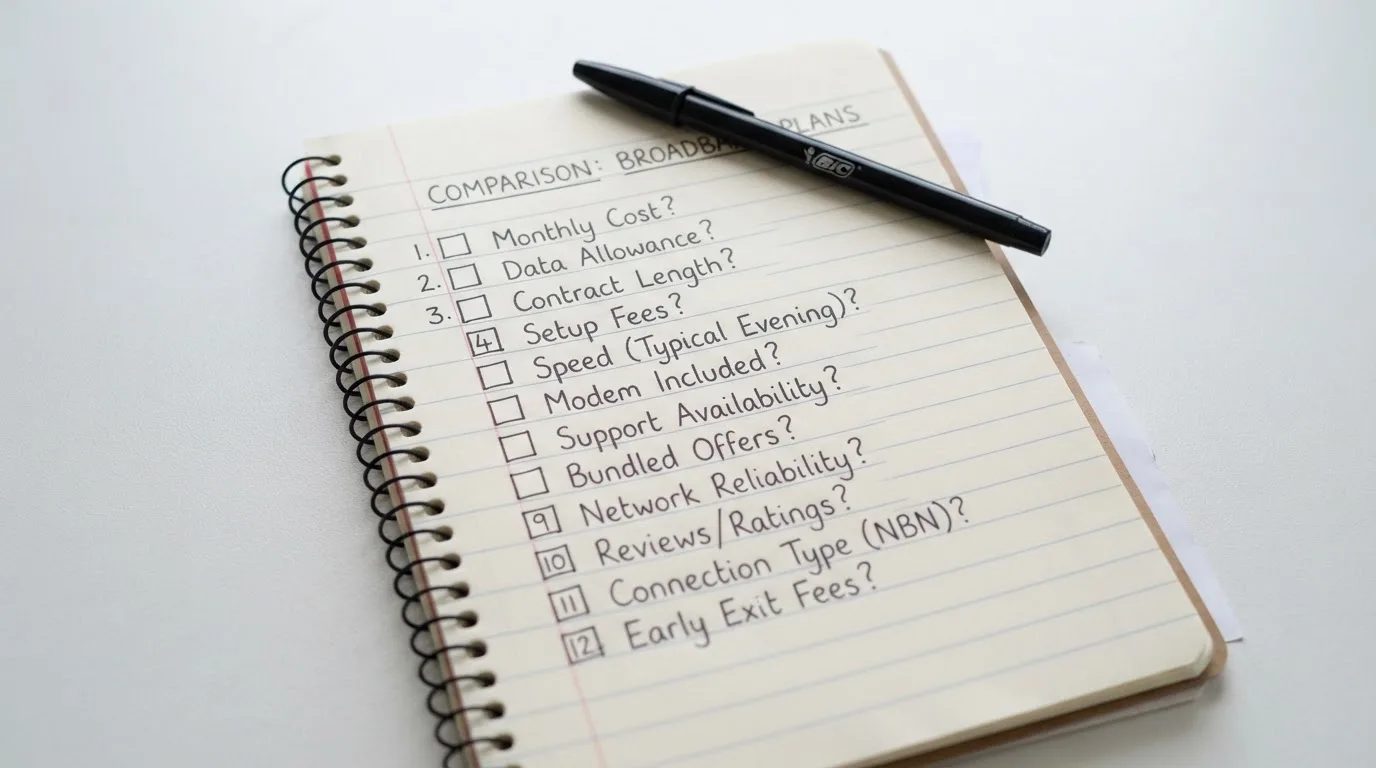 COMPARISON: BROADBA PLANS
BIC
1. Monthly Cost?
2. Data Allowance?
3. Contract Length?
4 Setup Fees?
Speed (Typical Evening)?
Modem Included?
Support Availability?
Bundled Offers?
9 Network Reliability?
10 Reviews/Ratings?
11 Connection Type (NBN)?
12 Early Exit Fees?